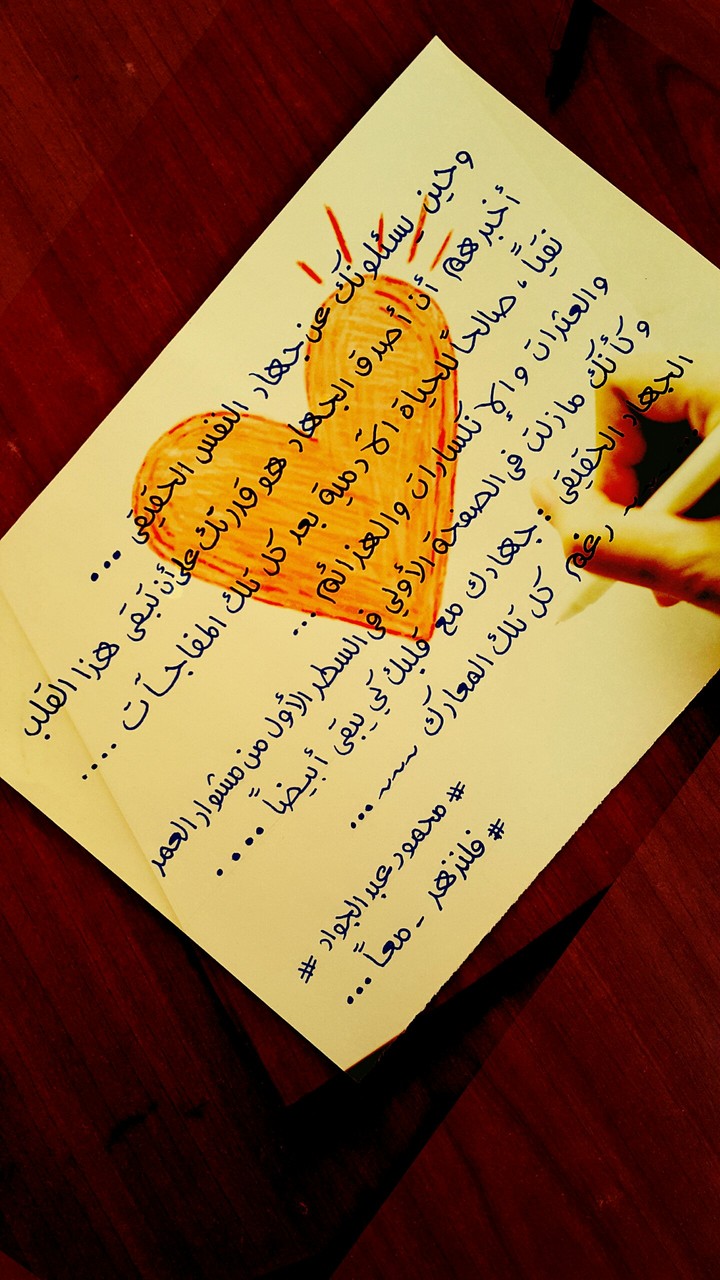 وحين يسئلونك عن جهاد النفس الحقيقي ...
أخبرهم أن أصدق الجهاد هو قدرتك على أن تبقى هذا القلب
نقيًا، صالحًا للحياة الآدمية بعد كل تلك المفاجآت ....
والعثرات والإنكسارات والهزائم ...
وكأنك مازلت في الصفحة الأولي في السطر الأول من مشوار العمر
الجهاد الحقيقي : جهادك مع قلبك كي يبقى أبيضًا ....
~~ رغم كل تلك المعارك ~~~ ...
# محمود عبد الجواد #
# فلنزهر - معًا ...